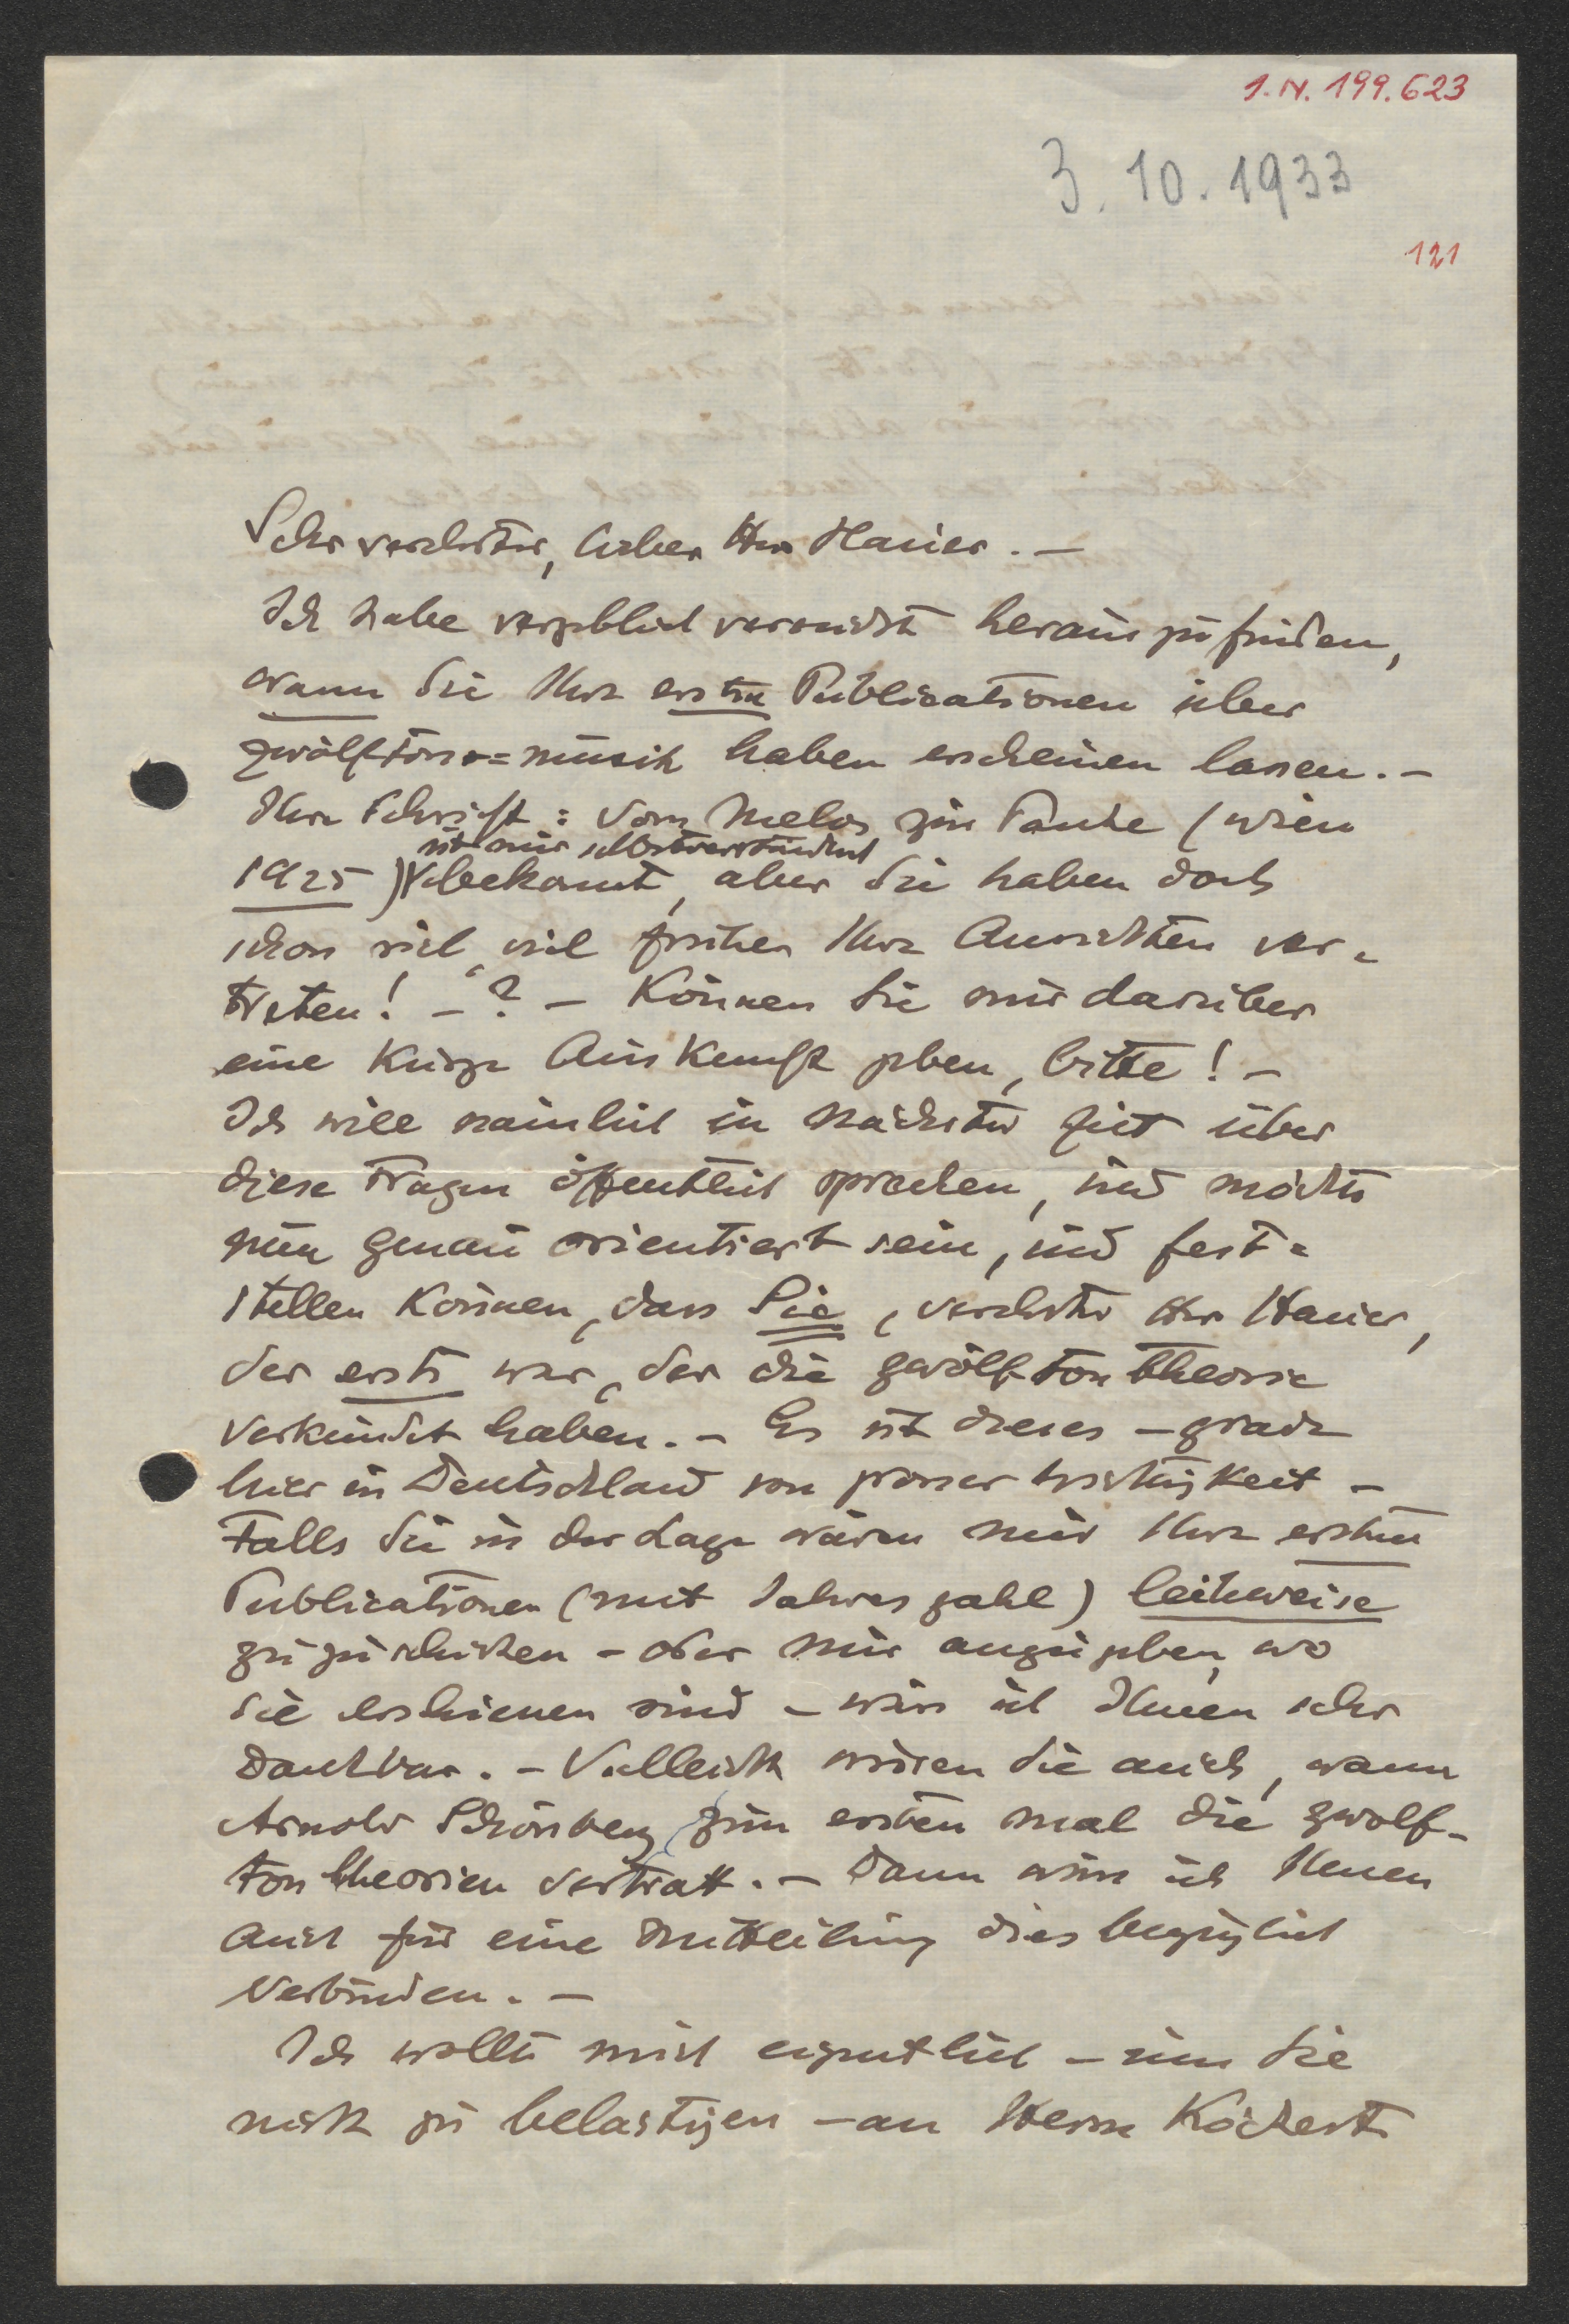 I.N. 199.623
3.10.1933
121
Sehr verehrter, lieber Herr Hauer. –
Ich habe vergeblich versucht herauszufinden,
wann Sie Ihre ersten Publicationen über
zwölftöne=musik haben erscheinen lassen. –
Ihre Schrift: Vom Melos zur Pauke (Wien
ist mir selbstverständlich
1925) bekannt, aber Sie haben doch
schon viel, viel früher Ihre Ansichten ver=
treten! – ? – Können Sie mir darüber
eine kurze Auskunft geben, bitte! –
Ich will nämlich in nächster Zeit über
diese Fragen öffentlich sprechen, und möchte
nun genau orientiert sein, und fest=
stellen können, dass Sie, verehrter Herr Hauer,
der erste war, der die zwölftontheorie
verkündet haben. – Es ist dieses – grade
hier in Deutschland von grosser Wichtigkeit –
Falls Sie in der Lage wären mir Ihre ersten
Publicationen (mit Jahreszahl) leihweise
zuzuschicken – oder mir anzugeben, wo
sie erschienen sind – wäre ich Ihnen sehr
dankbar. – Vielleicht wissen Sie auch, wann
Arnold Schönberg zum ersten mal die zwölf-
tontheorien vertratt. – Dann wäre ich Ihnen
auch für eine Mitteilung diesbezüglich
verbunden. –
Ich wollte mich eigentlich – um Sie
nicht zu belästigen – an Herrn Köchert